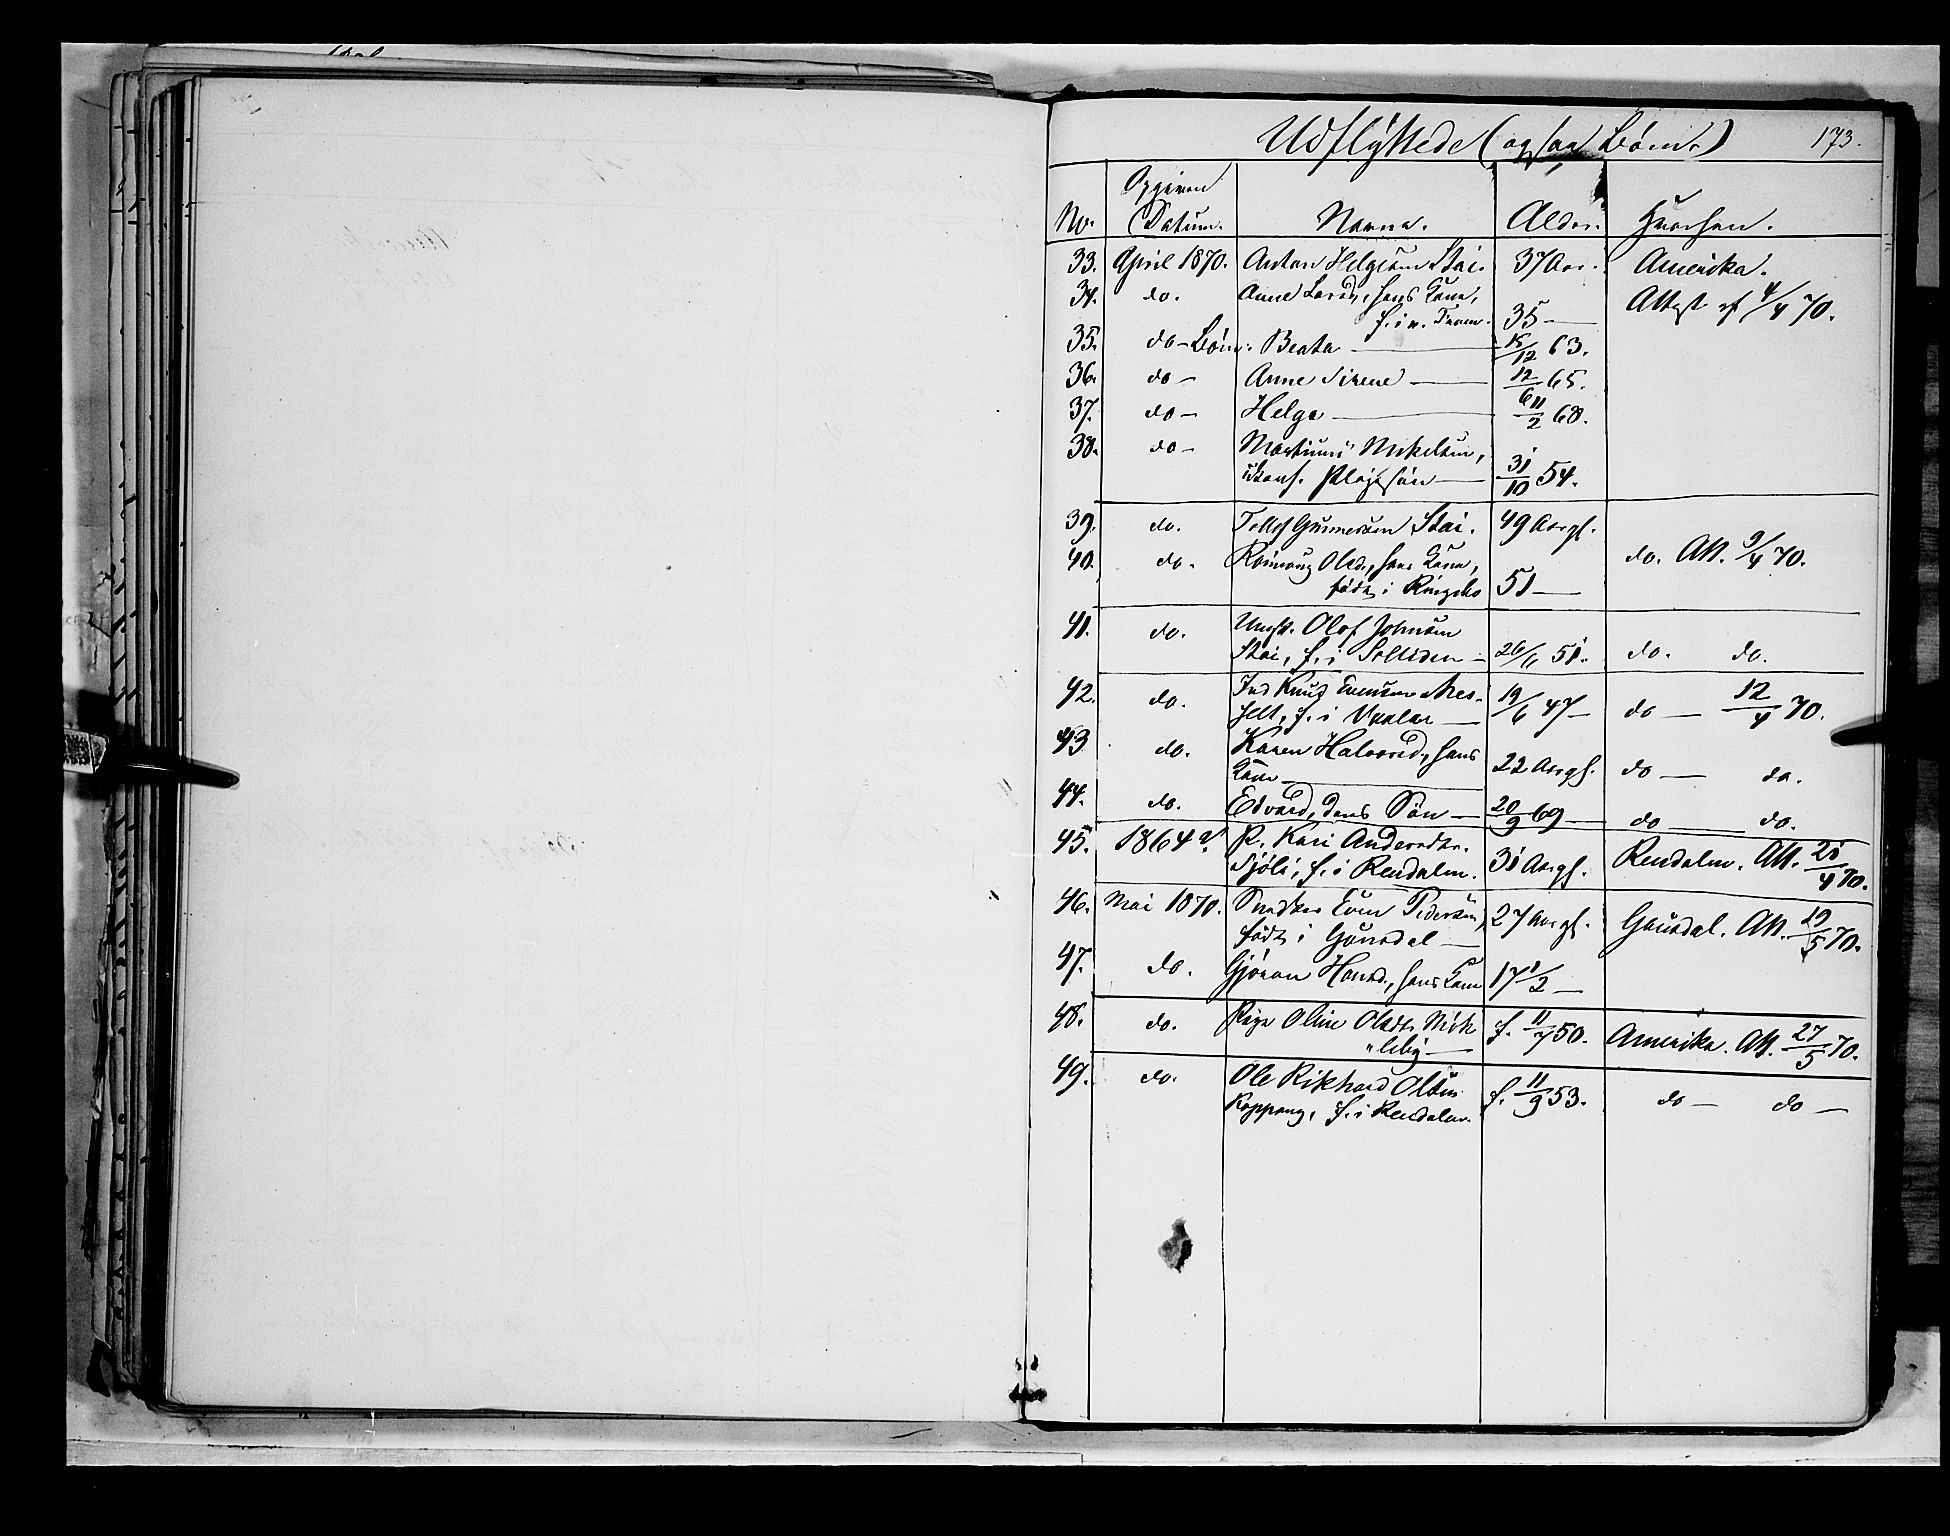 Udflyttede (ogsaa Børn) 173.
No. Opgiven Datum. Navne. Alder. Hvorhen.
33. April 1870. Anton Helgesen Stai. 37 Aar. Amerika.
34. do. Anne Larsd., hans Kone, Attest af 4/4 70.
f. i 35 —
35. do — Børn: Beata — 15/12 63.
36. do — Anne Sirene — 12/6 65.
37. do — Helga — 11/2 68.
38. do — Martinus Mikelsen,
Plejesøn — 31/10 54.
39. do. Tollef Gunnersen Stai. 49 Aargl.
40. do. Olsd., hans Kone, do. Att. 9/4 70.
født i Ringebo 51 —
41. do. Ungk. Olof Johnsen
Stai, f. i Solliden — 26/6 51. do. do.
42. do. Ind. Knud Evensen Mes-
felt, f. i — 19/6 47 — do — 12/4 70.
43. do. Karen Halvorsd., hans
Kone — 22 Aargl. do — do.
44. do. Edvard, deres Søn — 20/9 69 — do — do.
45. 1864 P. Kari Andersdtr.
Sjøli, f. i Rendalen. 31 Aargl. Rendalen. Att. 21/4 70.
46. Mai 1870. Snedker Even Pedersen, 27 Aargl. Gausdal. Att. 19/5 70.
født i Gausdal —
47. do. Gjøran Hansd., hans Kone 17 1/2 —
48. do. Pige Oline Olsdtr. Møk-
leby — f. 11/7 50. Amerika. Att. 27/5 70.
49. do. Ole Rikhard Olsen
Koppang, f. i Rendalen. f. 11/9 53. do — do —